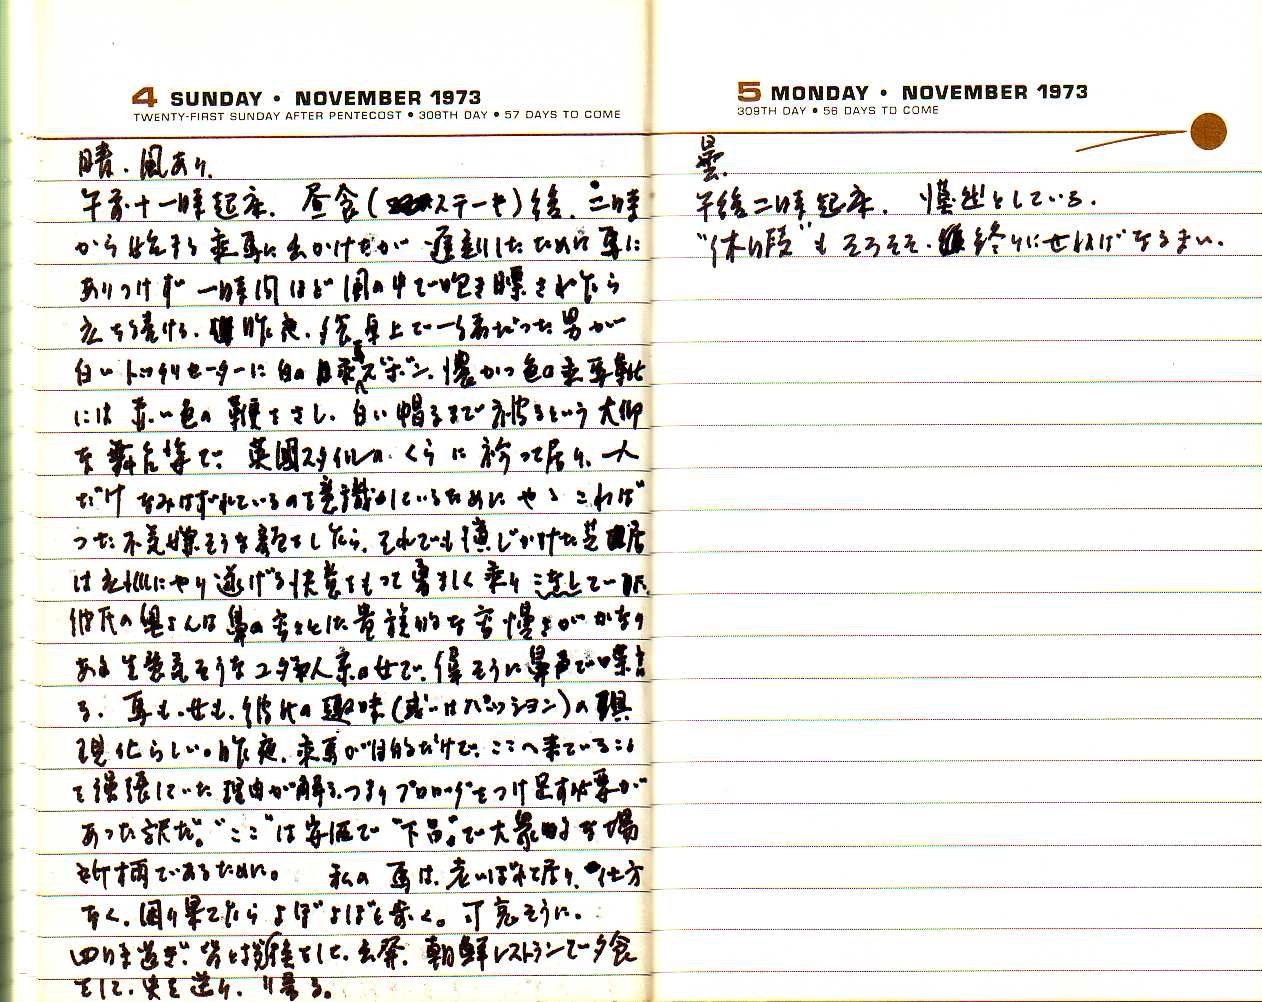 4 SUNDAY • NOVEMBER 1973
TWENTY-FIRST SUNDAY AFTER PENTECOST • 308TH DAY • 57 DAYS TO COME
晴、風あり、
午前十一時起床、昼食(ステーキ)後、二時
から始まる乗馬に出かけたが遅刻したために馬に
ありつけず一時間ほど風の中で吹き曝されながら
立ち続ける、昨夜、夕食卓上で一緒だった男が
白いトックリセーターに白の乗馬ズボン、濃かっ色の乗馬靴
には赤い色の鞭をさし、白い帽子まで被るという大仰
な舞台姿で、英国スタイルのくらに跨って居り、一人
だけなみはずれているのを意識しているためにややこわば
った不気嫌そうな顔をしながら、それでも演じかけた芝居
は立派にやり遂げる快感をもって勇ましく乗り
彼氏の奥さんは鼻の高さとは貴族的な高慢さがかなり
ある生意気そうなユダヤ人系の女で、偉そうに鼻声で喋
る、馬も、女も、彼氏の趣味(或いはパッション)の
現化らしい。昨夜、乗馬が目的だけで、ここへ来ていること
を強張していた理由が解る、つまりプロローグをつけ足す必要が
あった訳だ。"ここ"は安価で"下品"で大衆的な場
所柄であるために。 私の馬は、老いぼれて居り、仕方
なく、困り果てながらよぼよぼと歩く。可哀そうに。
四時過ぎ、皆と挨拶をして、出発、朝鮮レストランで夕食
をして、 送り、帰る。
5 MONDAY • NOVEMBER 1973
309TH DAY • 56 DAYS TO COME
曇、
午後二時起床、憮然としている、
"休暇"もそろそろ、終りにせねばなるまい、